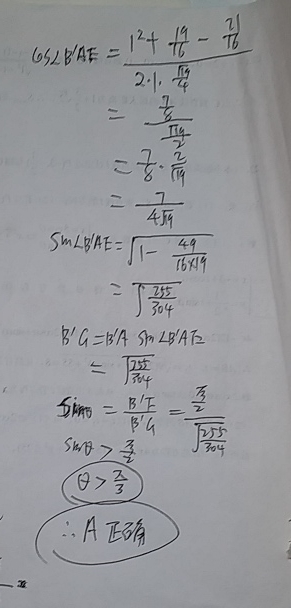 cos∠B'AE = (1² + 19/16 − 21/16) / (2·1·√19/4)
= (7/8) / (√19/2)
= 7/8 · 2/√19
= 7/(4√19)
sin∠B'AE = √(1 − 49/(16×19))
= √(255/304)
B'G = B'A sin∠B'AE
= √(255/304)
sinθ = B'F/B'G = (√3/2) / √(255/304)
sinθ > √3/2
θ > π/3
∴ A 正确